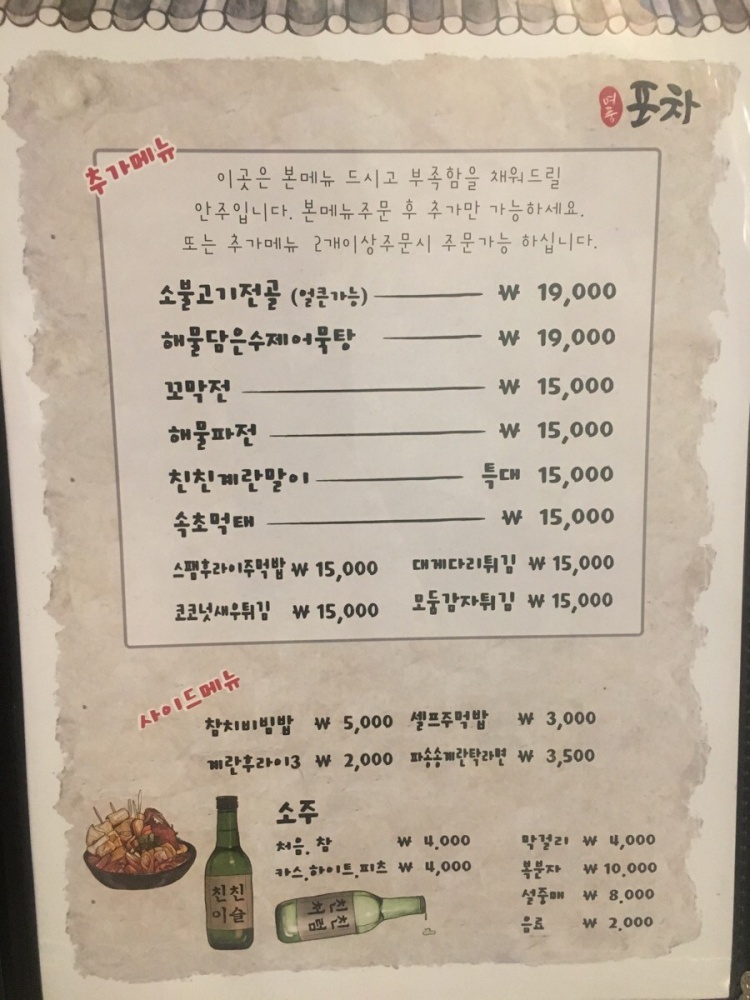 포차
추가메뉴
이곳은 본메뉴 드시고 부족함을 채워드릴
안주입니다. 본메뉴주문 후 추가만 가능하세요.
또는 추가메뉴 2개이상주문시 주문가능 하십니다.
소불고기전골 (얼큰가능) ₩ 19,000
해물담은수제어묵탕 ₩ 19,000
꼬막전 ₩ 15,000
해물파전 ₩ 15,000
친친계란말이 특대 15,000
속초먹태 ₩ 15,000
스팸후라이주먹밥 ₩ 15,000 대게다리튀김 ₩ 15,000
코코넛새우튀김 ₩ 15,000 모둠감자튀김 ₩ 15,000
사이드메뉴
참치비빔밥 ₩ 5,000 셀프주먹밥 ₩ 3,000
계란후라이3 ₩ 2,000 파송송계란탁라면 ₩ 3,500
소주
처음. 참 ₩ 4.000 막걸리 ₩ 4,000
카스.하이트.피츠 ₩ 4,000 복분자 ₩ 10.000
설중매 ₩ 8.000
음료 ₩ 2.000
친친
이슬
친친